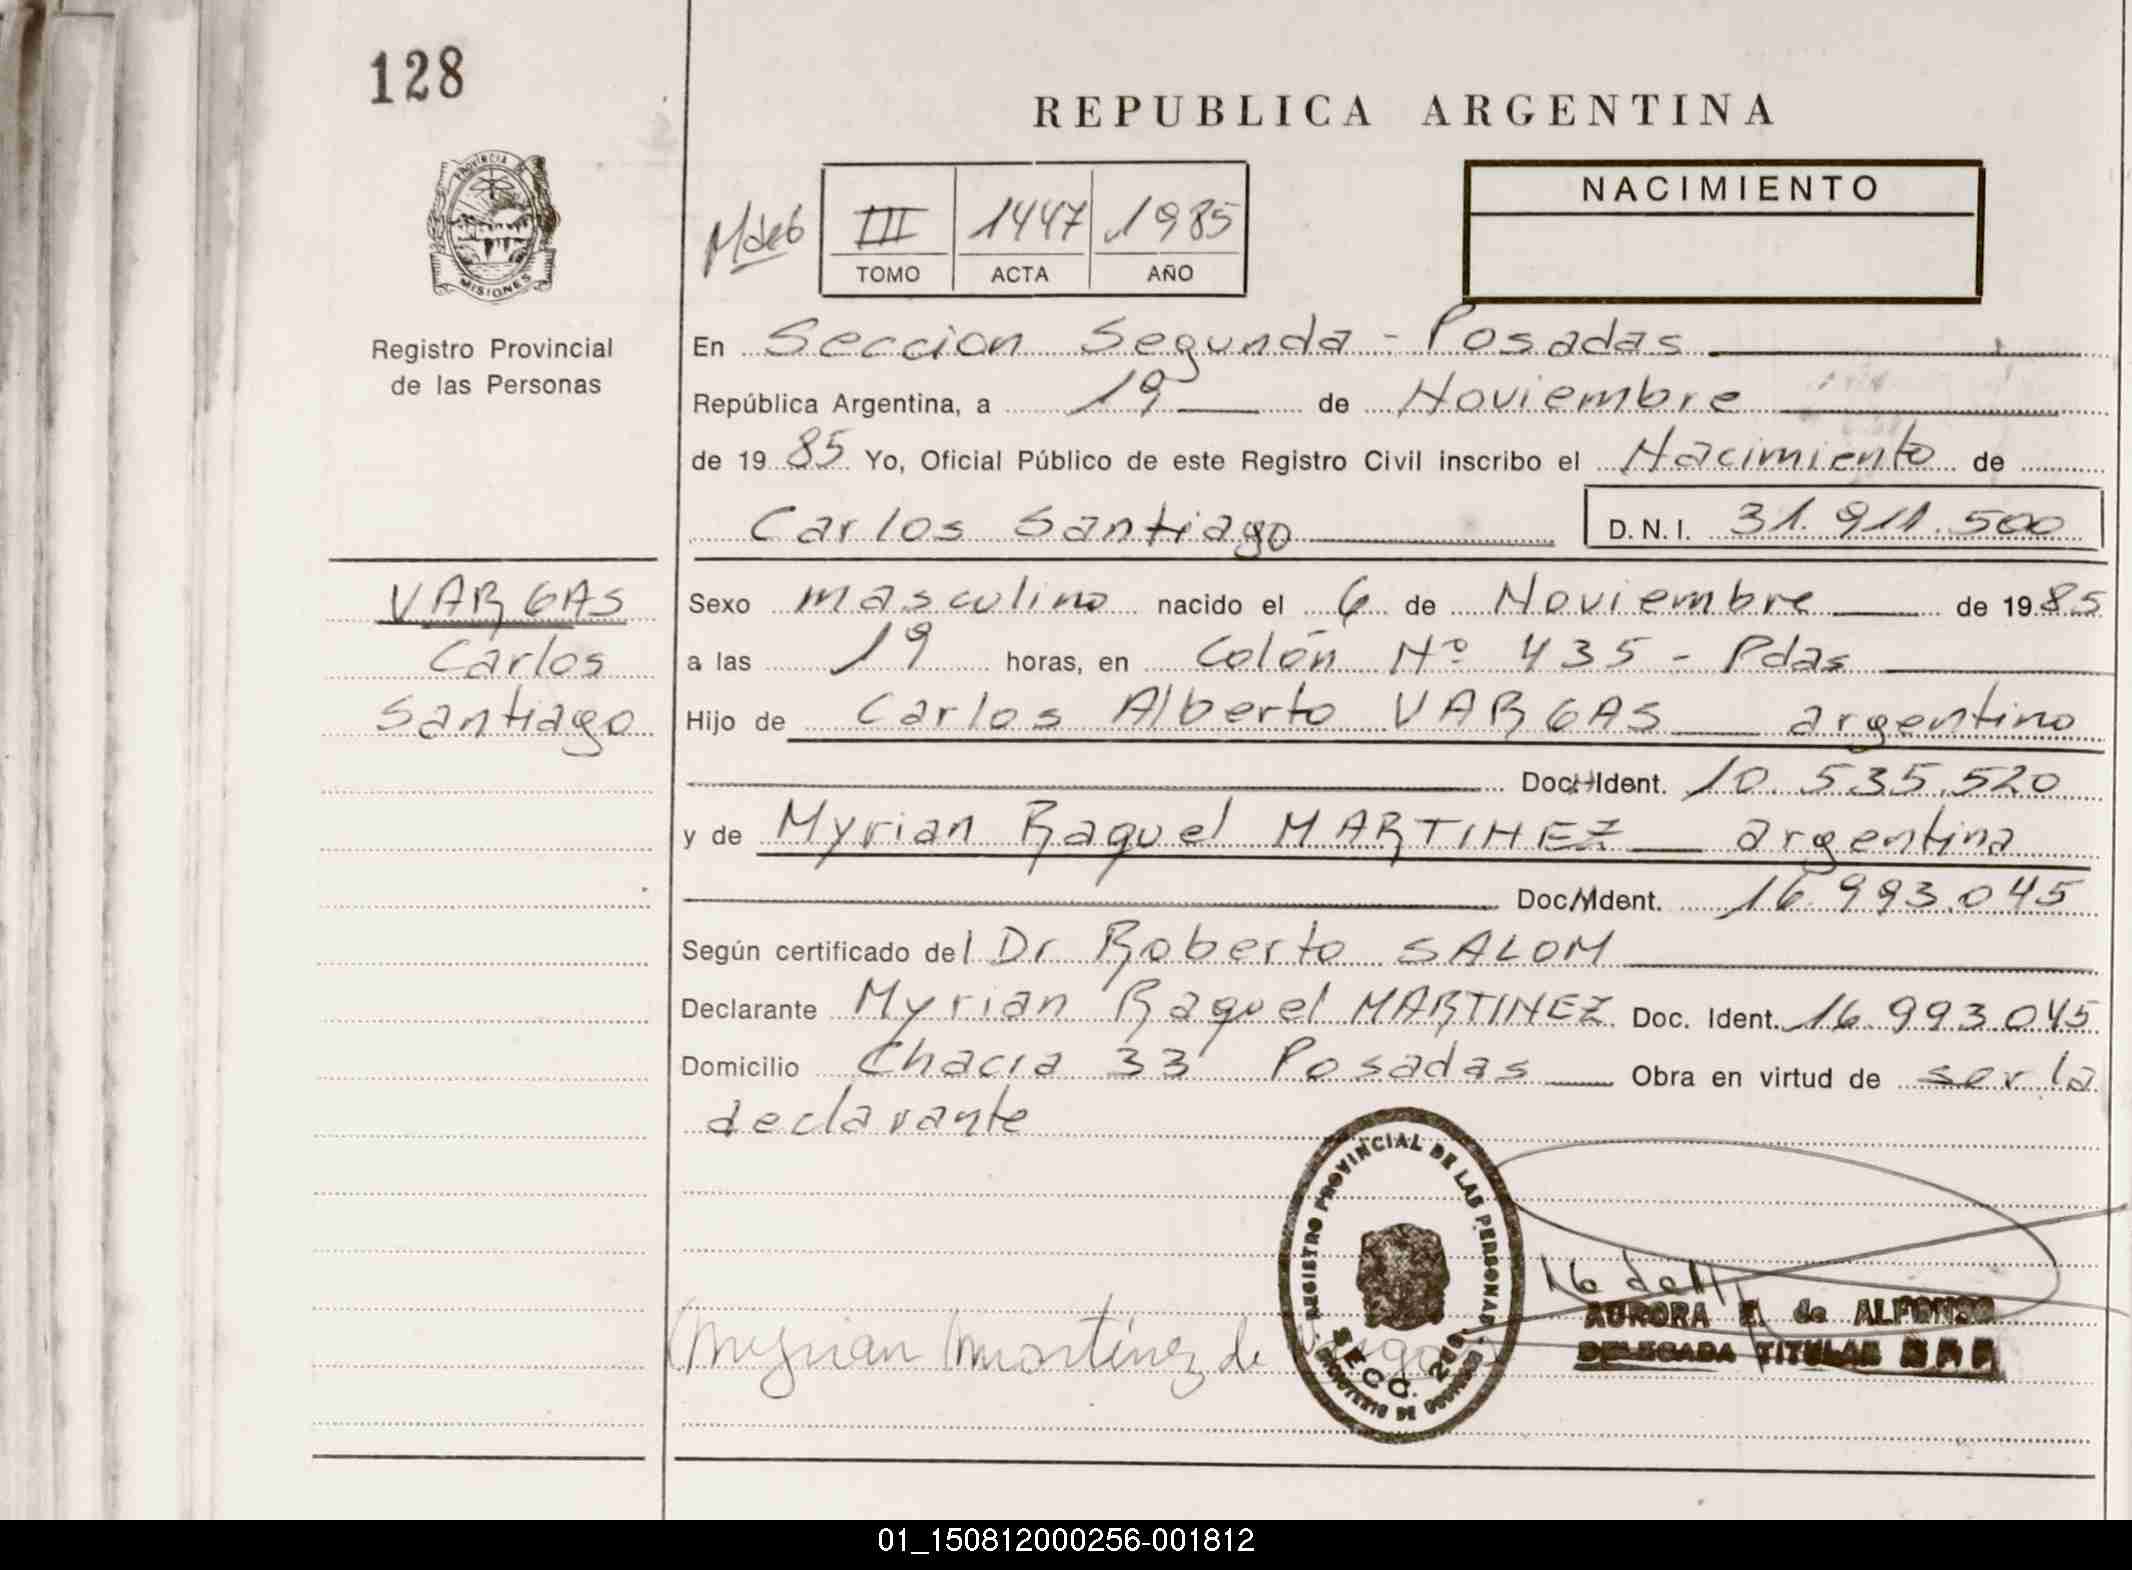 128
REPUBLICA ARGENTINA
PROVINCIA DE
MISIONES
Registro Provincial
de las Personas
III 1447 1985
TOMO ACTA AÑO
NACIMIENTO
En Seccion Segunda - Posadas
República Argentina, a 19 de Noviembre
de 1985 Yo, Oficial Público de este Registro Civil inscribo el Nacimiento de
Carlos Santiago D.N.I. 31.911.500
VARGAS
Carlos
Santiago
Sexo masculino nacido el 6 de Noviembre de 1985
a las 19 horas, en Colón Nº 435 - Pdas
Hijo de Carlos Alberto VARGAS argentino
Doc. Ident. 10.535.520
y de Myrian Raquel MARTINEZ argentina
Doc. Ident. 16.993.045
Según certificado del Dr Roberto SALOM
Declarante Myrian Raquel MARTINEZ Doc. Ident. 16.993.045
Domicilio Chacra 33 Posadas Obra en virtud de ser la
declarante
REGISTRO PROVINCIAL DE LAS PERSONAS
SECC. 2da
MINISTERIO DE GOBIERNO
Myrian Martínez de
AURORA E. de ALFONSO
DELEGADA TITULAR
01_150812000256-001812